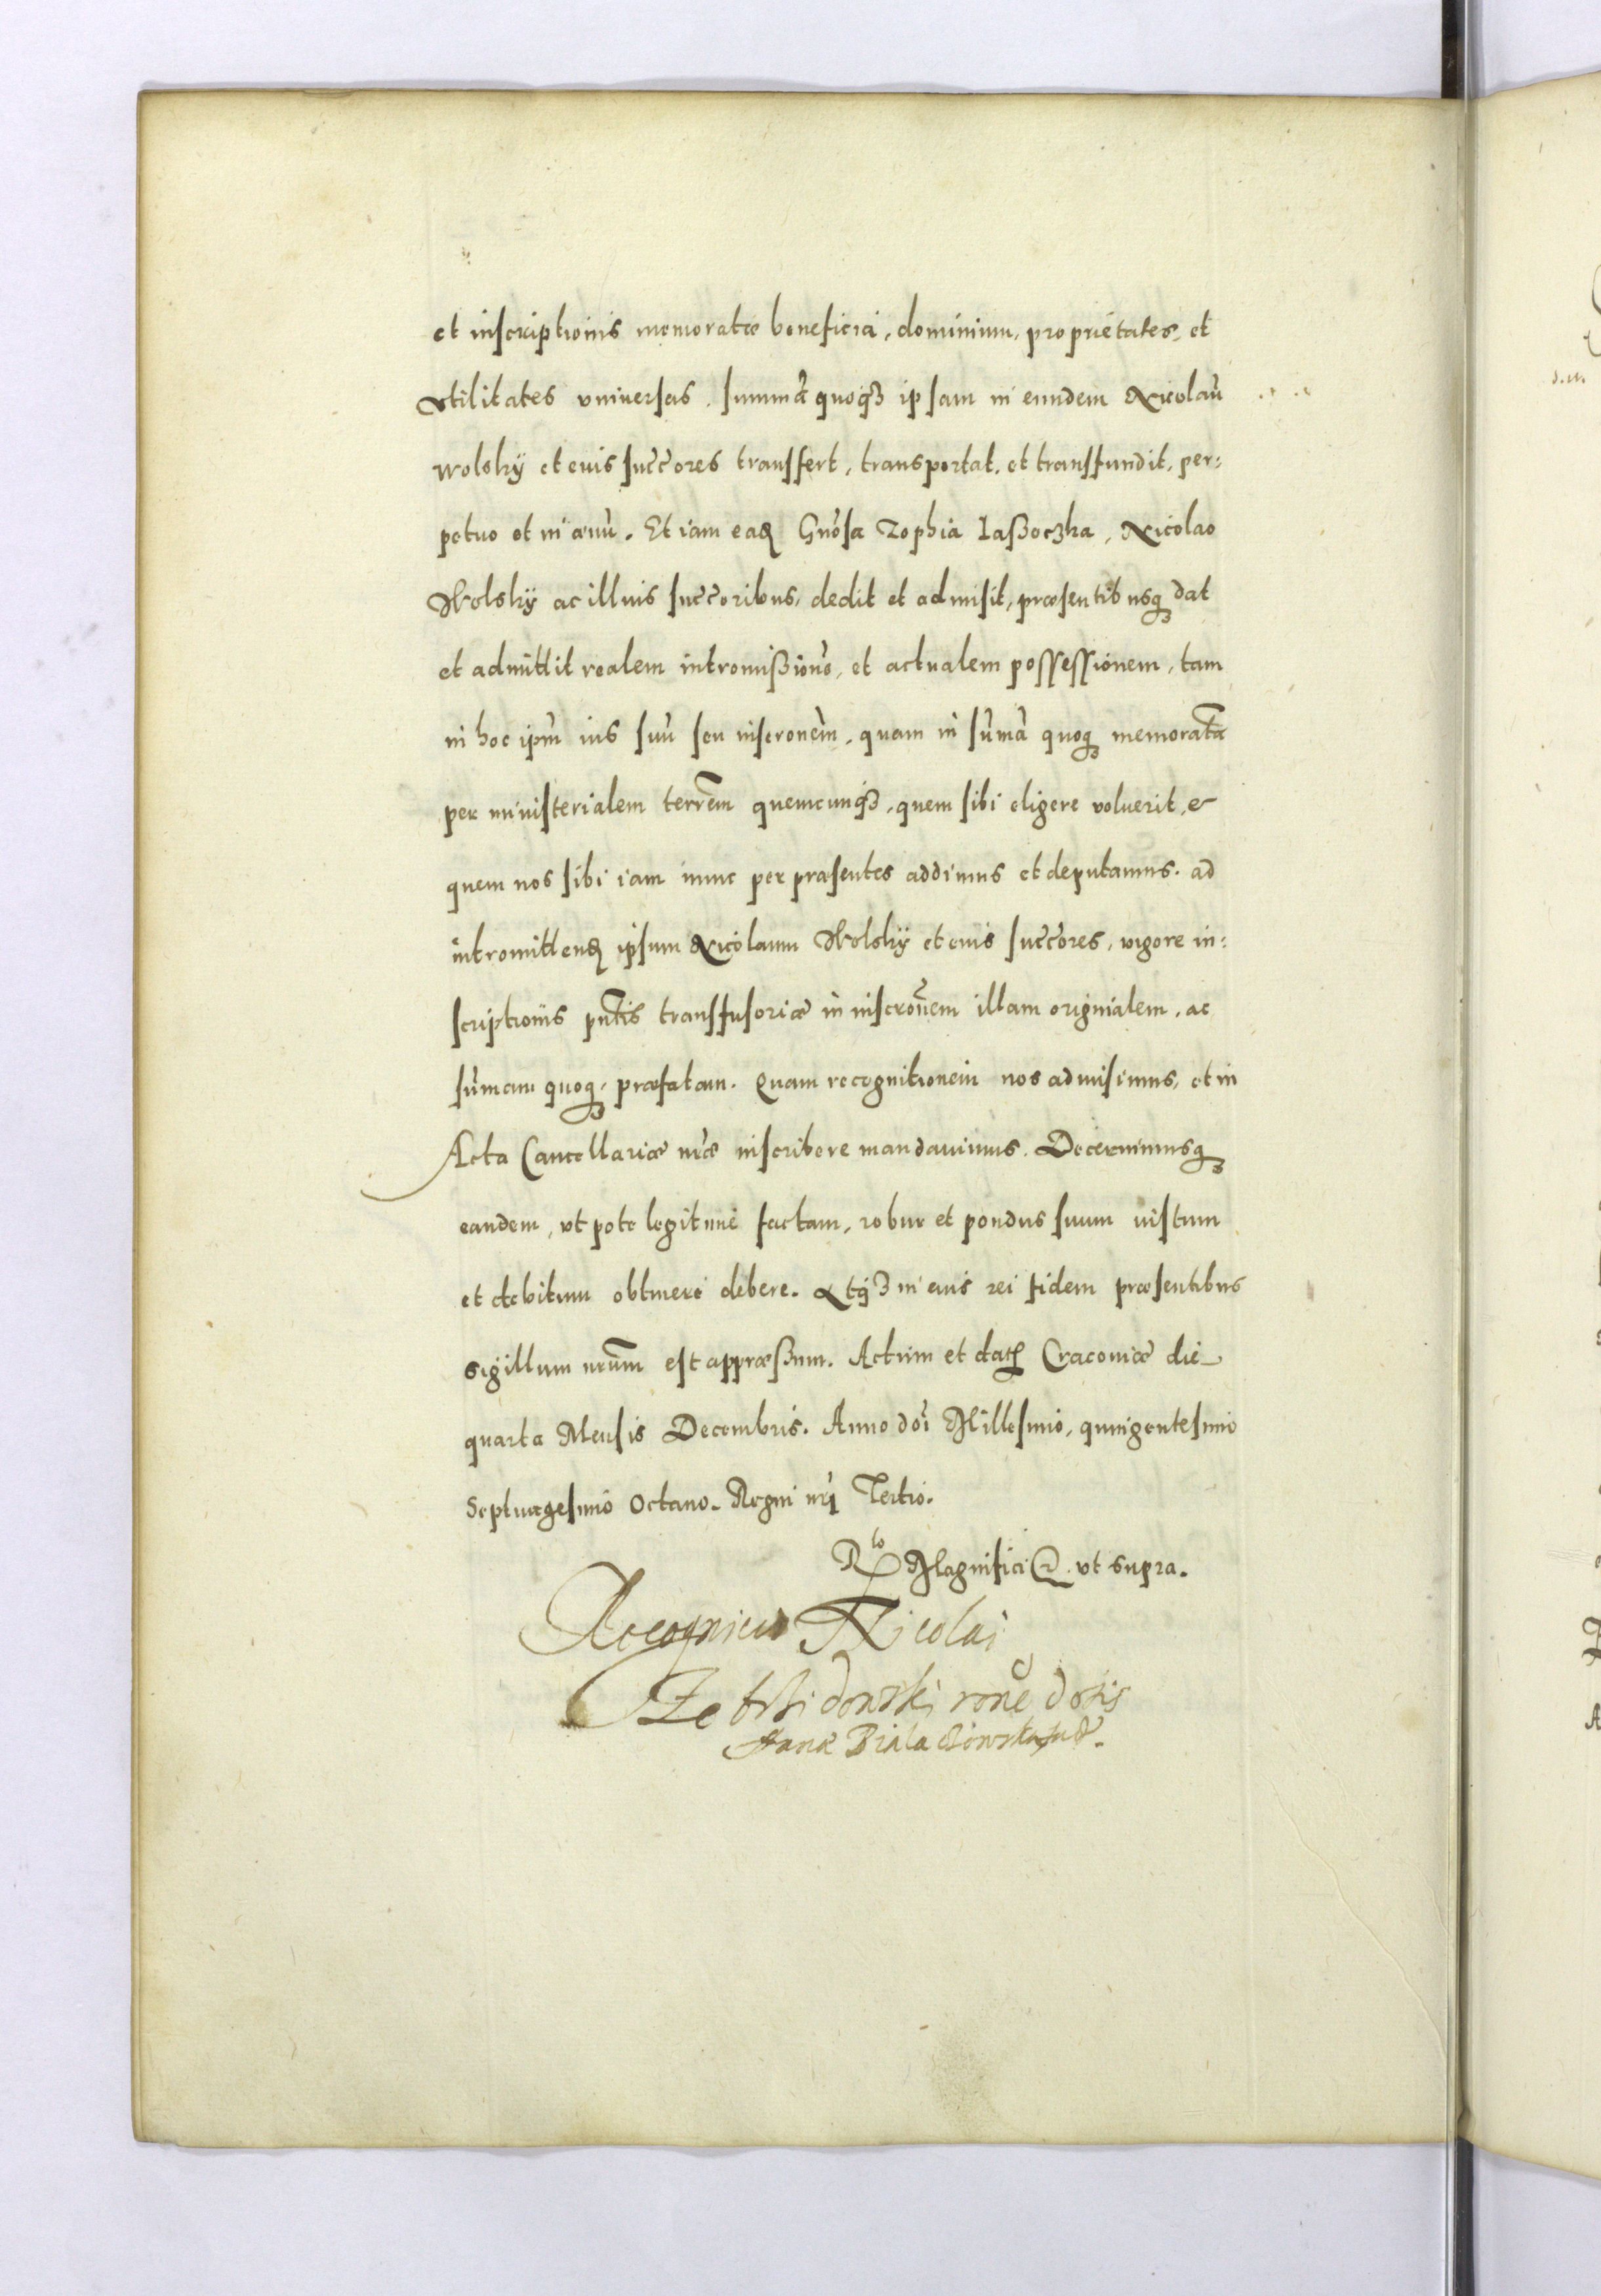 et inscriptionis memoratæ beneficia, dominium, proprietates, et
vtilitates vniuersas. summã quoqȝ ipsam in eundem Nicolaũ
wolsky et euis succores transfert, transportat, et transfundit, per:
petuo et in æuũ. Et iam eadē Gnosa Zophia Iaßoczka, Nicolao
Wolsky ac illius succoribus, dedit et admisit, præsentibusqȝ dat
et admittit realem intromißionē, et actualem possessionem, tam
in hoc ipm̃ ius suũ seu inscronẽm, quam in sum̃ã quoqȝ memoratã
per ministerialem terrẽm quemcunqȝ, quem sibi eligere voluerit, et
quem nos sibi iam nunc per præsentes addimus et deputamus. ad
intromittendū ipsum Nicolaum Wolsky et euis succores, vigore in:
scriptionis pñtis transfusoriæ in inscronẽm illam originalem, ac
sum̃am quoqȝ, præfatam. Quam recognitionem nos admisimus, et in
Acta Cancellariæ nr̃æ inscribere mandauimus. Decernimusqȝ
eandem, vt pote legitimè factam, robur et pondus suum iustum
et debitum obtinere debere. Atqȝ in euis rei fidem præsentibus
sigillum nrũm est appræßum. Actum et datū Cracouiæ die
quarta Mensis Decembris. Anno doĩ Millesimo, quingentesimo
Septuagesimo Octauo. Regni nr̃i Tertio.
Rlo Magnifici &c. vt supra.
Recognicio Nicolai
Zebrzidowski rone dotis